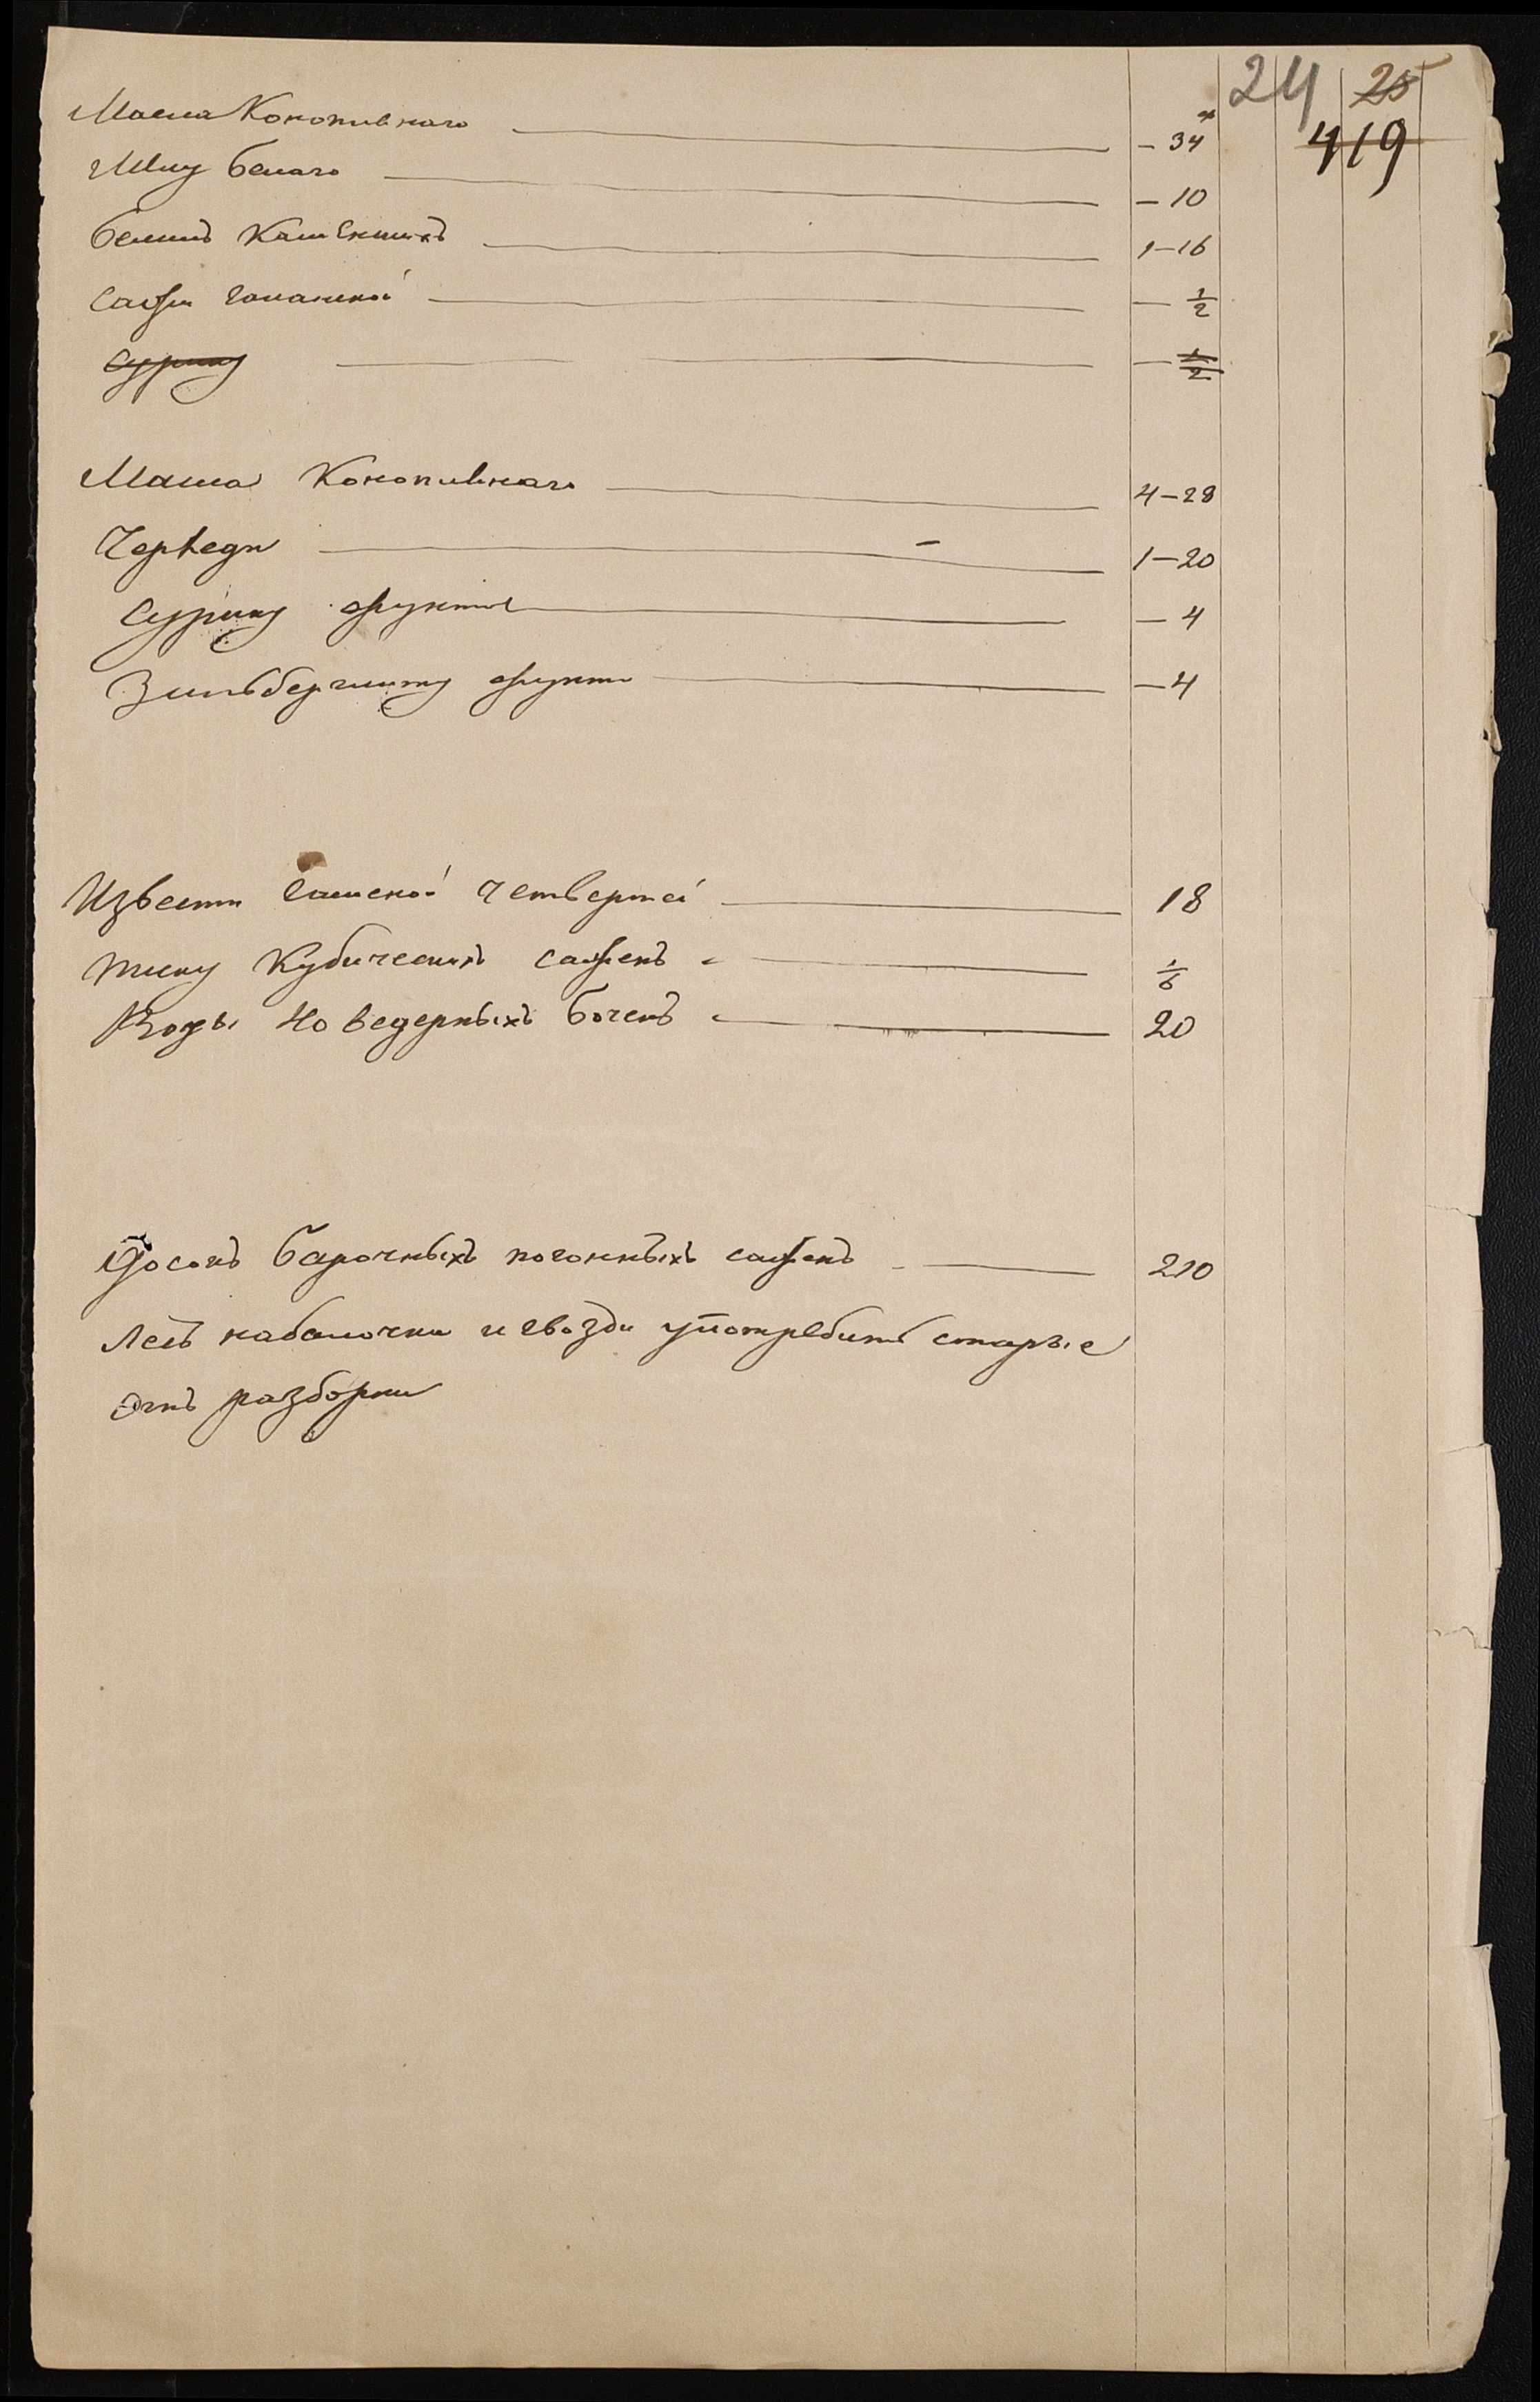 24 25
419
Масла Конопляннаго — 34
Мелу белаго — 10
белилъ Кашенских 1–16
Сажи голанской — 1/2
Сурику — 1/2
Масла Конопляннаго 4–28
Черведи 1–20
Сурику фунтов — 4
Зильберглиту фунт — 4
Извести гашеной четвертей 18
песку Кубических сажень 1/6
Воды 40 ведерныхъ бочекъ 20
Досокъ барочныхъ погонныхъ сажень 210
Лесъ кабалочки и гвозди употребить старые
отъ разборки